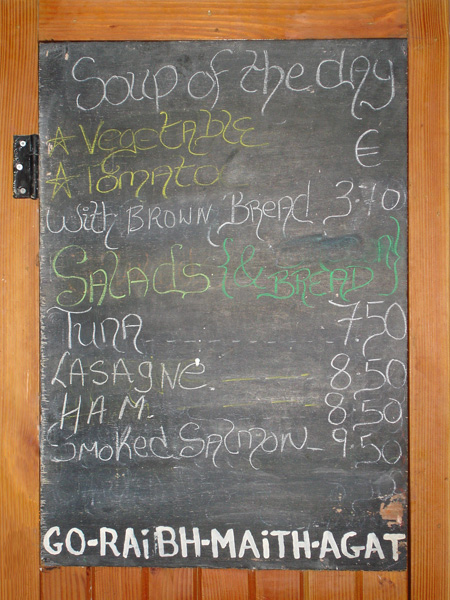 Soup of the day
☆ Vegetable
☆ Tomato €
With BROWN Bread 3.70
Salads {& BREAD}
TUNA 7.50
LASAGNE 8.50
HAM. 8.50
Smoked Salmon 9.50
GO-RAiBH-MAiTH-AGAT